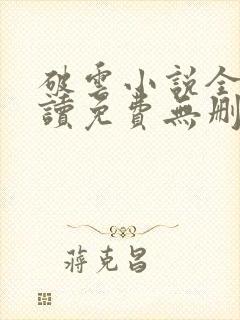 破雲小說全
讀免費無刪
蔣克昌